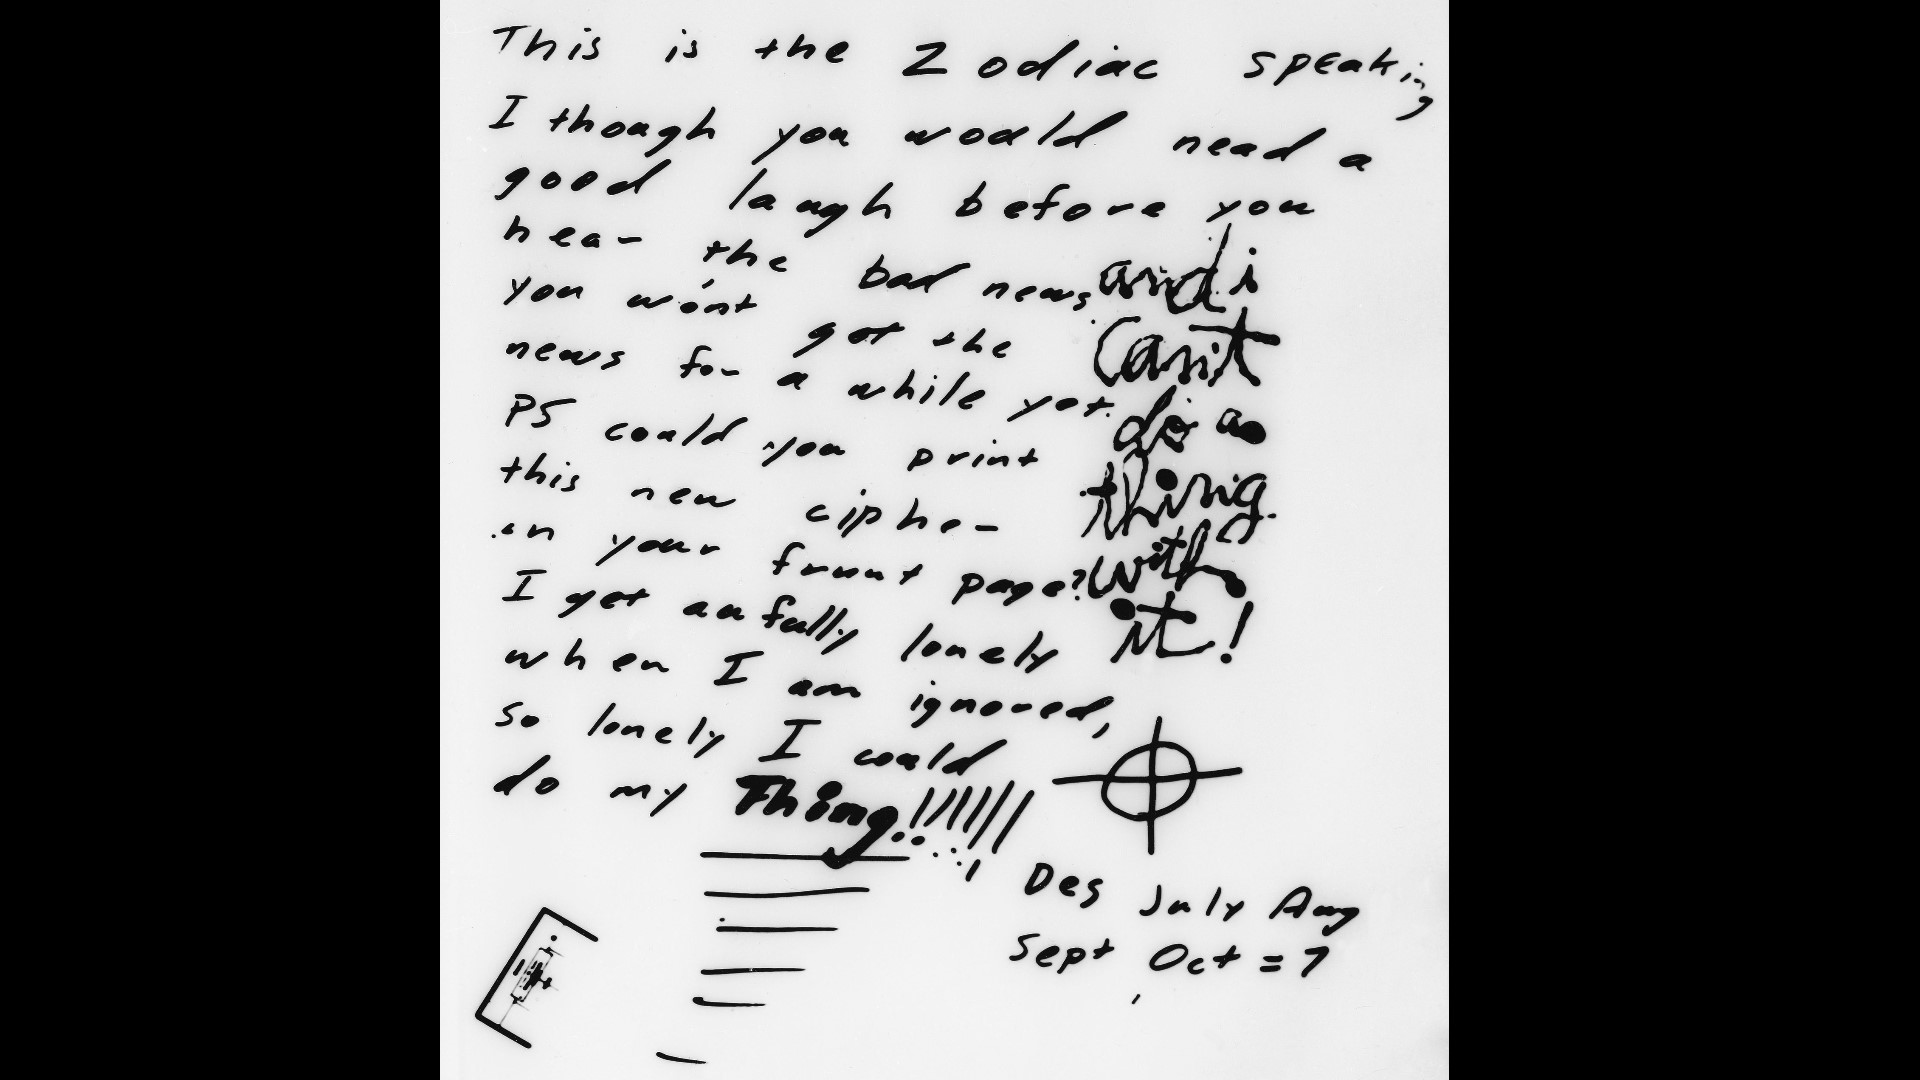 This is the Zodiac speaking
I though you would need a
good laugh before you
hear the bad news
you won't get the
news for a while yet.
PS could you print
this new cipher
on your frunt page?
I get aufully lonely
when I am ignored,
so lonely I could
do my Thing!!!!!!
and i
Can't
do a
thing
with
it!
Des July Aug
Sept Oct = 7